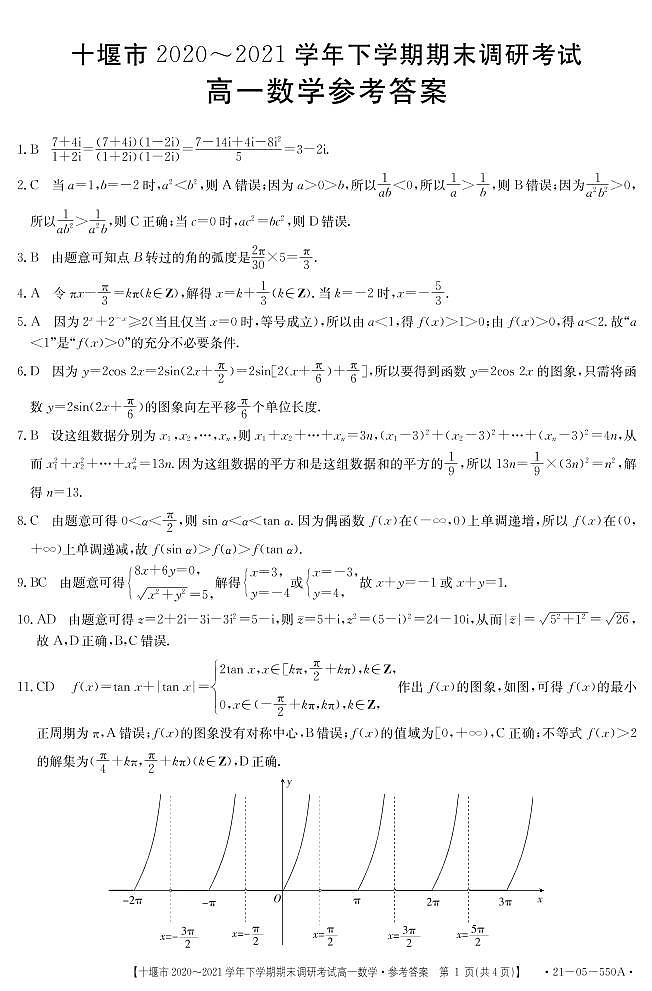 十堰市 2020～2021 学年下学期期末调研考试
高一数学参考答案
1. B  (7+4i)/(1+2i)=(7+4i)(1-2i)/((1+2i)(1-2i))=(7-14i+4i-8i²)/5=3-2i.
2. C  当 a=1,b=-2 时,a²<b²,则 A 错误;因为 a>0>b,所以 1/(ab)<0,所以 1/a>1/b,则 B 错误;因为 1/(a²b²)>0,
所以 1/(ab²)>1/(a²b),则 C 正确;当 c=0 时,ac²=bc²,则 D 错误.
3. B  由题意可知点 B 转过的角的弧度是 2π/30×5=π/3.
4. A  令 πx-π/3=kπ(k∈Z),解得 x=k+1/3(k∈Z).当 k=-2 时,x=-5/3.
5. A  因为 2ˣ+2⁻ˣ≥2(当且仅当 x=0 时,等号成立),所以由 a<1,得 f(x)>1>0;由 f(x)>0,得 a<2.故“a
<1”是“f(x)>0”的充分不必要条件.
6. D  因为 y=2cos 2x=2sin(2x+π/2)=2sin[2(x+π/6)+π/6],所以要得到函数 y=2cos 2x 的图象,只需将函
数 y=2sin(2x+π/6)的图象向左平移 π/6 个单位长度.
7. B  设这组数据分别为 x₁,x₂,…,xₙ,则 x₁+x₂+…+xₙ=3n,(x₁-3)²+(x₂-3)²+…+(xₙ-3)²=4n,从
而 x₁²+x₂²+…+xₙ²=13n.因为这组数据的平方和是这组数据和的平方的 1/9,所以 13n=1/9×(3n)²=n²,解
得 n=13.
8. C  由题意可得 0<α<π/2,则 sin α<α<tan α.因为偶函数 f(x)在(-∞,0)上单调递增,所以 f(x)在(0,
+∞)上单调递减,故 f(sin α)>f(α)>f(tan α).
9. BC  由题意可得{8x+6y=0, √(x²+y²)=5,解得{x=3, y=-4 或{x=-3, y=4, 故 x+y=-1 或 x+y=1.
10. AD  由题意可得 z=2+2i-3i-3i²=5-i,则 z̄=5+i,z²=(5-i)²=24-10i,从而|z̄|=√(5²+1²)=√26,
故 A,D 正确,B,C 错误.
11. CD  f(x)=tan x+|tan x|={2tan x,x∈[kπ,π/2+kπ),k∈Z, 0,x∈(-π/2+kπ,kπ),k∈Z, 作出 f(x)的图象,如图,可得 f(x)的最小
正周期为 π,A 错误;f(x)的图象没有对称中心,B 错误;f(x)的值域为[0,+∞),C 正确;不等式 f(x)>2
的解集为(π/4+kπ,π/2+kπ)(k∈Z),D 正确.
y
-2π -π O π 2π 3π x
x=-3π/2 x=-π/2 x=π/2 x=3π/2 x=5π/2
【十堰市 2020～2021 学年下学期期末调研考试高一数学·参考答案 第 1 页(共 4 页)】 ·21-05-550A·